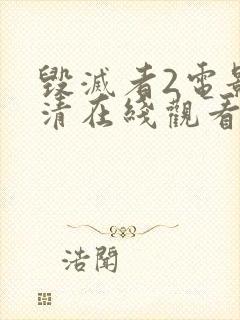 毀滅者2電影
清在綫觀看
浩聞